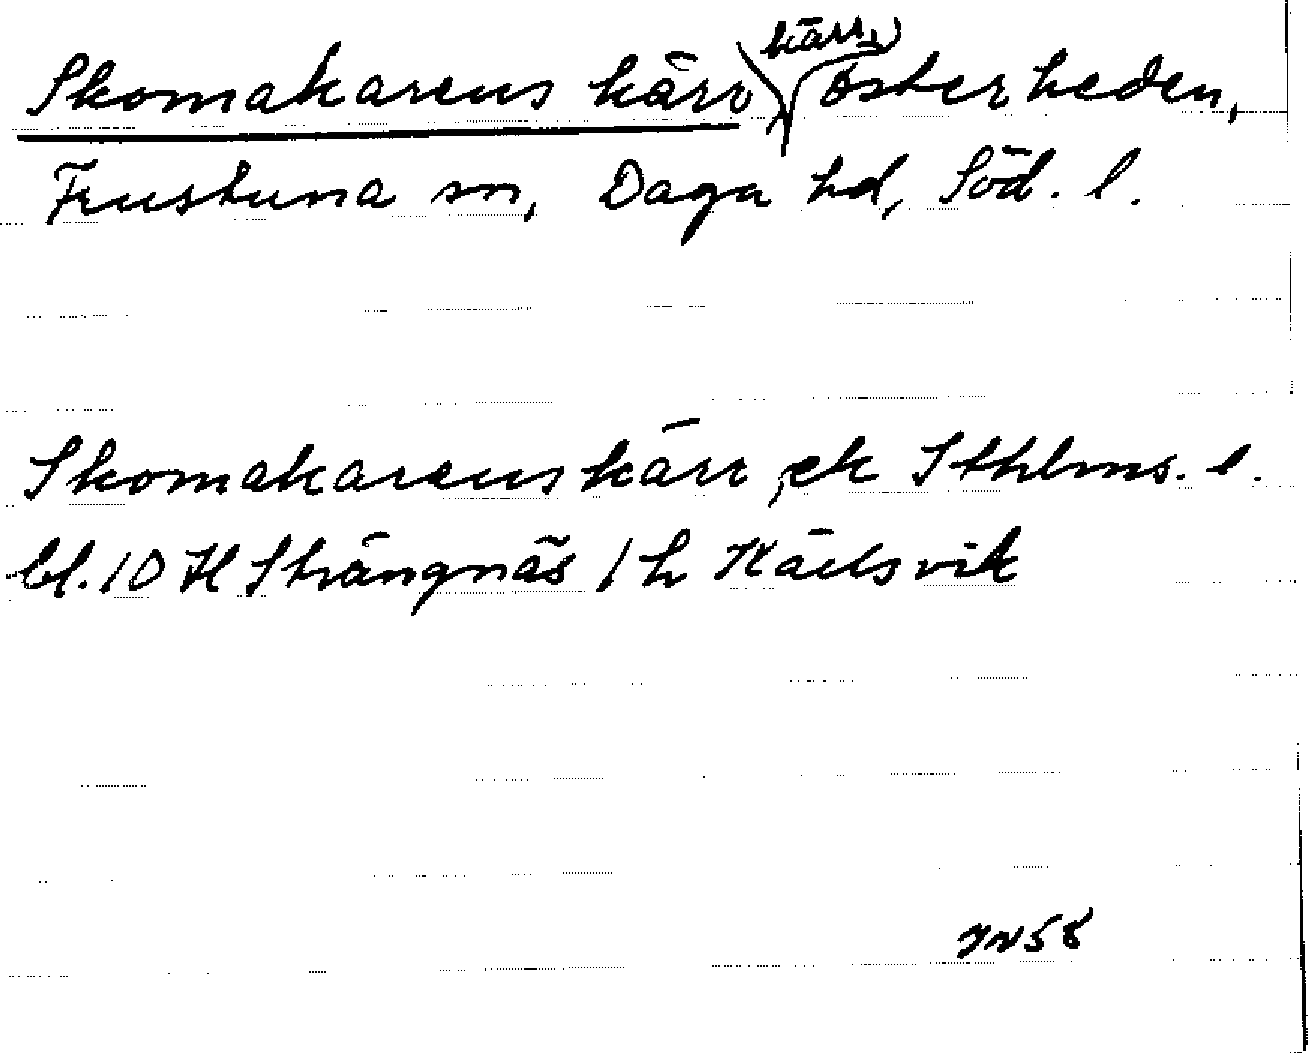 Skomakarens kärr, kärr, Österheden,
Frustuna sn, Daga hd, Söd. l.
Skomakarens kärr, ek Sthlms. l.
bl. 10 H Strängnäs 1 h
58